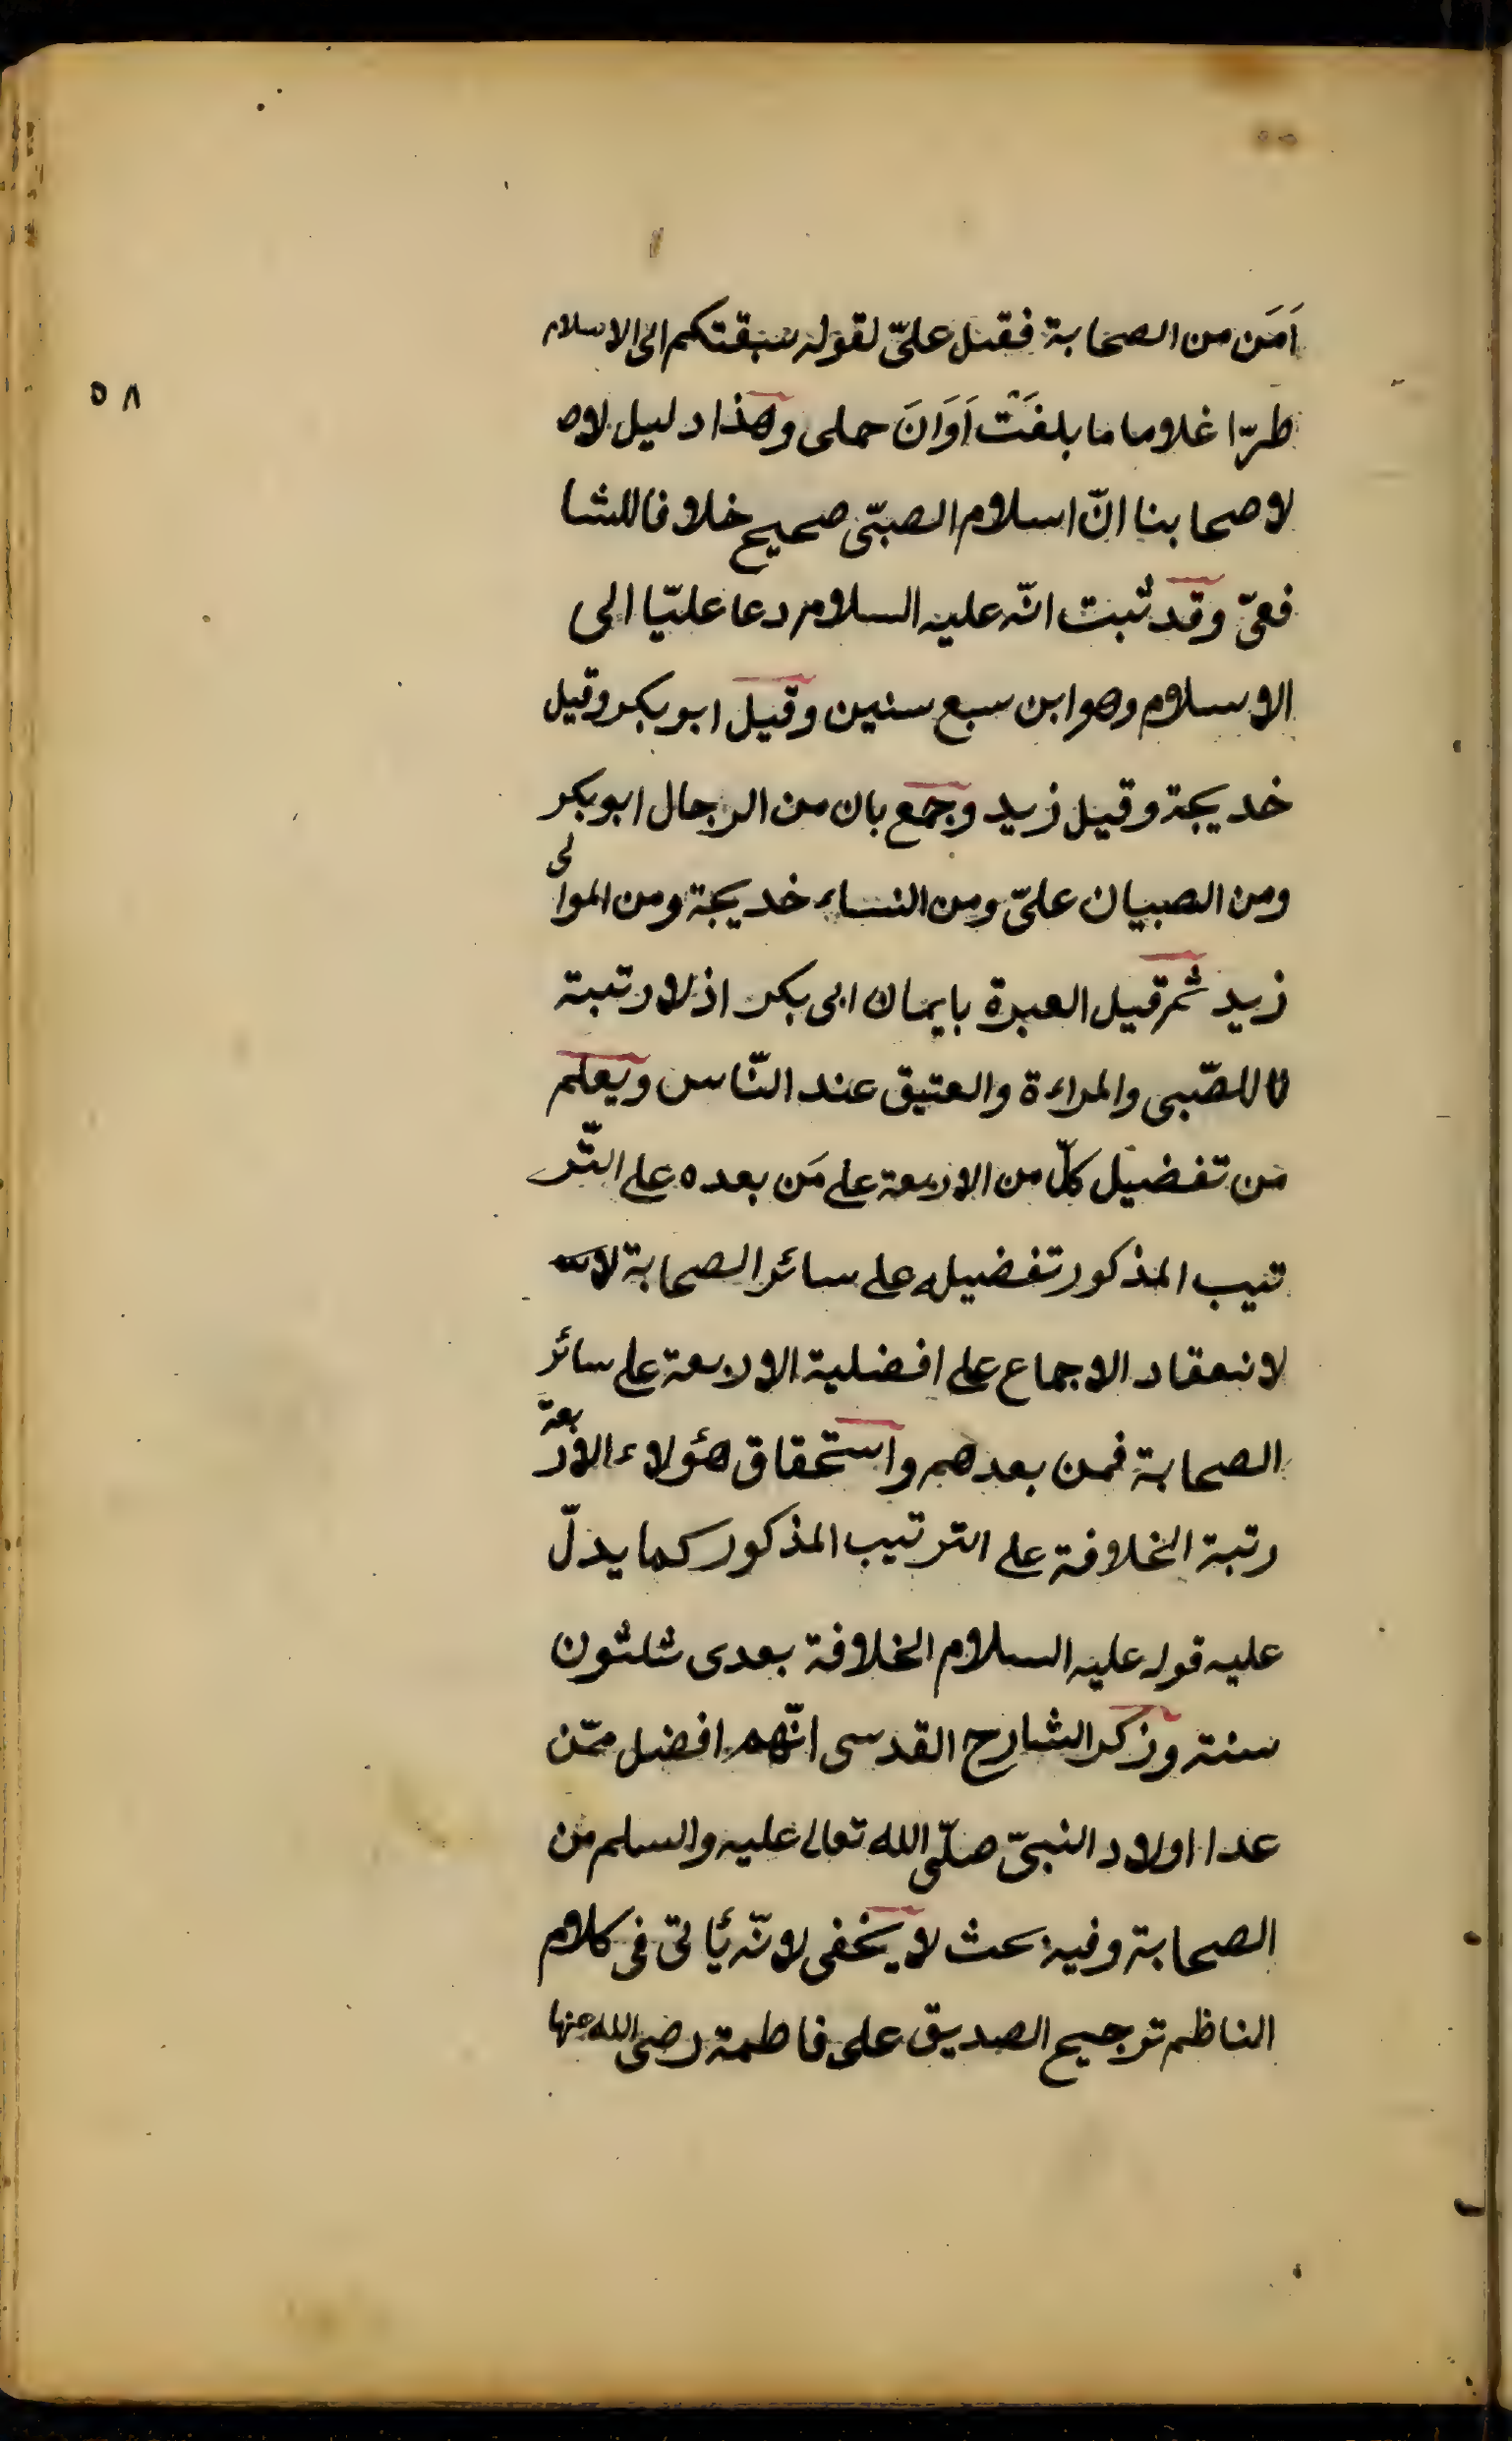 ٥٨
اَمَن من الصحابة فقيل علىّ لقوله سبقتكم الى الاسلام
طرّا غلاما ما بلغَتْ اَوَانَ حملى وهذا دليل لاص
لاصحابنا انّ اسلام الصبّى صحيح خلافا للشا
فعىّ وقد ثبت انّه عليه السلام دعا عليّا الى
الاسلام وهو ابن سبع سنين وقيل ابو بكر وقيل
خديجة وقيل زيد وجمع بان من الرجال ابو بكر
ومن الصبيان علىّ ومن النساء خديجة ومن الموالى
زيد ثم قيل العبرة بايمان ابى بكر اذ لا رتبة
للصّبى والمراءة والعتيق عند النّاس ويعلم
مَن تفضيل كلّ من الاربعة على مَن بعده على التّر
تيب المذكور تفضيله على سائر الصحابة
لانعقاد الاجماع على افضلية الاربعة على سائر
الصحابة فمن بعدهم واستحقاق هؤلاء الاربعة
رتبة الخلافة على الترتيب المذكور كما يدلّ
عليه قوله عليه السلام الخلافة بعدى ثلثون
سنة وذكر الشارح القدسى انّهم افضل ممّن
عدا اولاد النبىّ صلّى الله تعالى عليه والسلم من
الصحابة وفيه بحث لا يخفى لانّه يأتى فى كلام
الناظم ترجيح الصديق على فاطمة رضى الله عنها